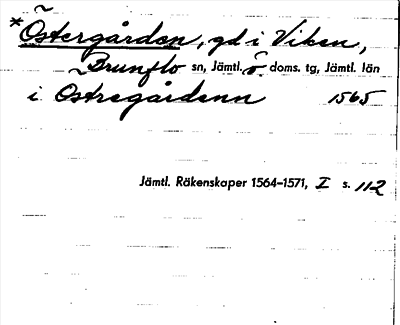 *Östergården, gd i Viken,
Brunflo sn, Jämtl. ö. doms. tg, Jämtl. län
i Ostregårdenn 1565
Jämtl. Räkenskaper 1564-1571, I s. 112